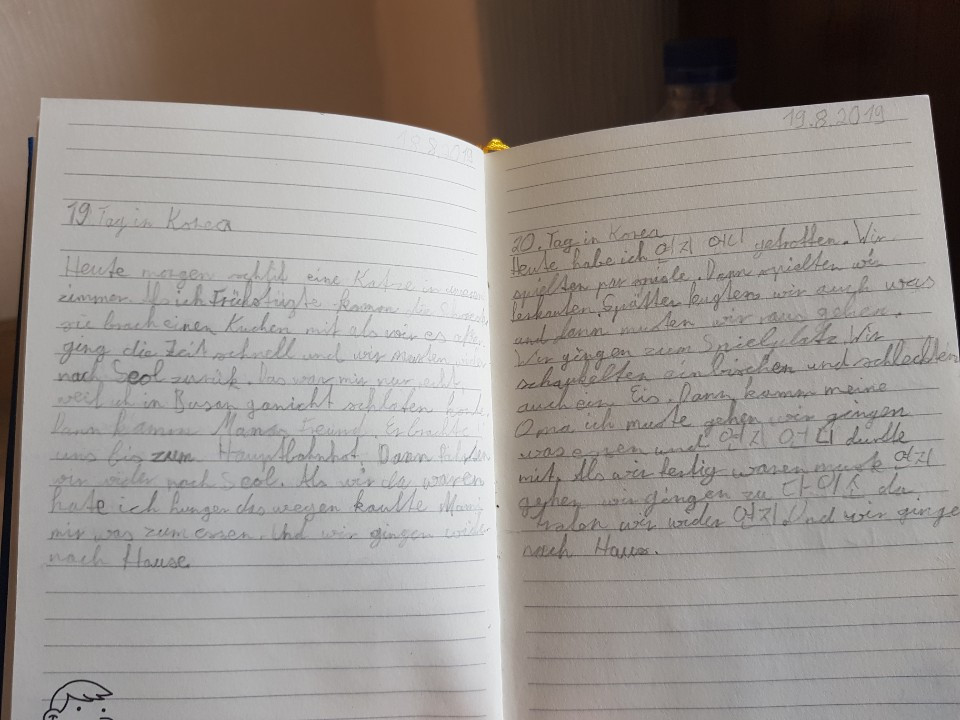 18.8.2019
19 Tag in Korea
Heute morgen schlif eine Katze in unserem
zimmer. Als ich Frühstügte kamen die
sie brach einen Kuchen mit als wir es aßen
ging die Zeit schnell und wir musten
nach Seol zurük. Das war mir nur echt,
weil ich in Busan ganicht schlafen konte.
Dann kamm Mamas Freund. Er brachte
uns bis zum Hauptbahnhof. Dann fuhren
wir wider nach Seol. Als wir da waren
hate ich hunger des wegen kaufte Mama
mir was zum essen. Und wir gingen wider
nach Hause
19.8.2019
20. Tag in Korea
Heute habe ich 연지 언니 getroffen. Wir
spielten Dann spielten wir
Spätter wir auch was
und dann musten wir raus gehen.
Wir gingen zum Spielplatz. Wir
schaukelten ein bischen und schleckten
auch ein Eis. Dann kamm meine
Oma ich muste gehen wir gingen
was essen und 연지 언니 durfte
mit. Als wir fertig waren muste 연지
gehen wir gingen zu 다이소 da
trafen wir wider 연지. Und wir ginge
nach Haus.